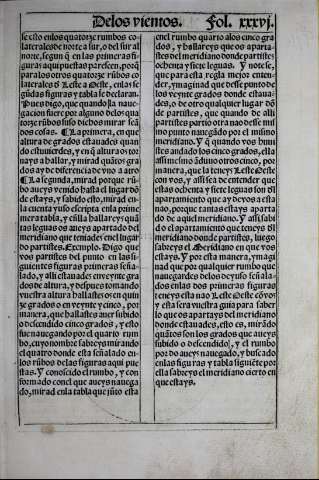 Delos vientos. Fol. xxxvj.
se esto enlos quatorze rumbos co
laterales de norte a sur, o del sur al
norte, segun q̃ en las primeras fi
guras aqui puestas parescen, porq̃
para los otros quatorze rũbos co
laterales đ Leste a Oeste, enlas se
gũdas figuras y tabla se declaran.
Pues digo, que quando la naue-
gacion fuere por alguno delos qua
torze rũbos suso dichos mirar seã
dos cosas. ¶ La primera, en que
altura de grados estauades quan
do estuuierdes, y en q̃ altura os tor
nays a hallar, y mirad quãtos gra
dos ay de diferencia de vno a otro
¶ La segunda, mirad porque rũ-
bo aueys venido hasta el lugar dõ
de estays, y sabido esto, mirad en
la cuenta yuso escripta enla prime
ra tabla, y ẽ silla hallareys quã
tas leguas os aueys apartado del
meridiano que teniades enel lugar
do partistes. Exemplo. Digo que
vos partistes del punto en las si-
guientes figuras primeras seña-
lado, y alli estauades en veynte gra
dos de altura, y despues tomando
vuestra altura hallastes os en quin
ze grados o en veynte y cinco, por
manera, que hallastes auer subido
o descendido cinco grados, y esto
fue nauegando por el quarto rum
bo, cuyo nombre sabreys mirando
el quatro donde esta señalado en-
los rũbos delas figuras aqui pue
stas. Y conoscido el rumbo, y con
formado conel que aueys nauega
do, mirad enla tabla que jũto esta
enel rumbo quarto a los cinco gra
dos, y hallareys que os aparta-
stes del meridiano donde partistes
ochenta y siete leguas. Y note se,
que para esta regla mejor enten-
der, ymaginad que desse punto de
los veynte grados donde estaua-
des, o de otro qualquier lugar dõ
de partistes, que quando de alli
partistes partio otra nao desse mis
mo punto nauegãdo por el mismo
meridiano. Y q̃ quando vos huui
stes andado los cinco grados, ella
assi mesmo ãduuo otros cinco, por
manera, que la teneys Leste Oeste
con vos, y assi se a de entender que
estas ochenta y siete leguas son đl
apartamiento que ay de vos a esta
nao, porque tantas estays aparta
do de aquel meridiano. Y assi, sabi
do el apartamiento que teneys đl
meridiano donde partistes, luego
sabreys el Meridiano en que vos
estays. Y por esta manera, ymagi
nad que por qualquier rumbo que
nauegardes delos de yuso señala-
dos enlas dos primeras figuras
teneys esta nao Leste Oeste cõ vos
y esta sera vuestra guia para saber
lo que os apartays del meridiano
donde estauades, esto es, mirado
quãtos son los grados que aueys
subido o descendido, y el rumbo
por do aueys nauegado, y buscado
enlas figuras y tabla siguiẽte por
ella sabreys el meridiano cierto en
que estays.